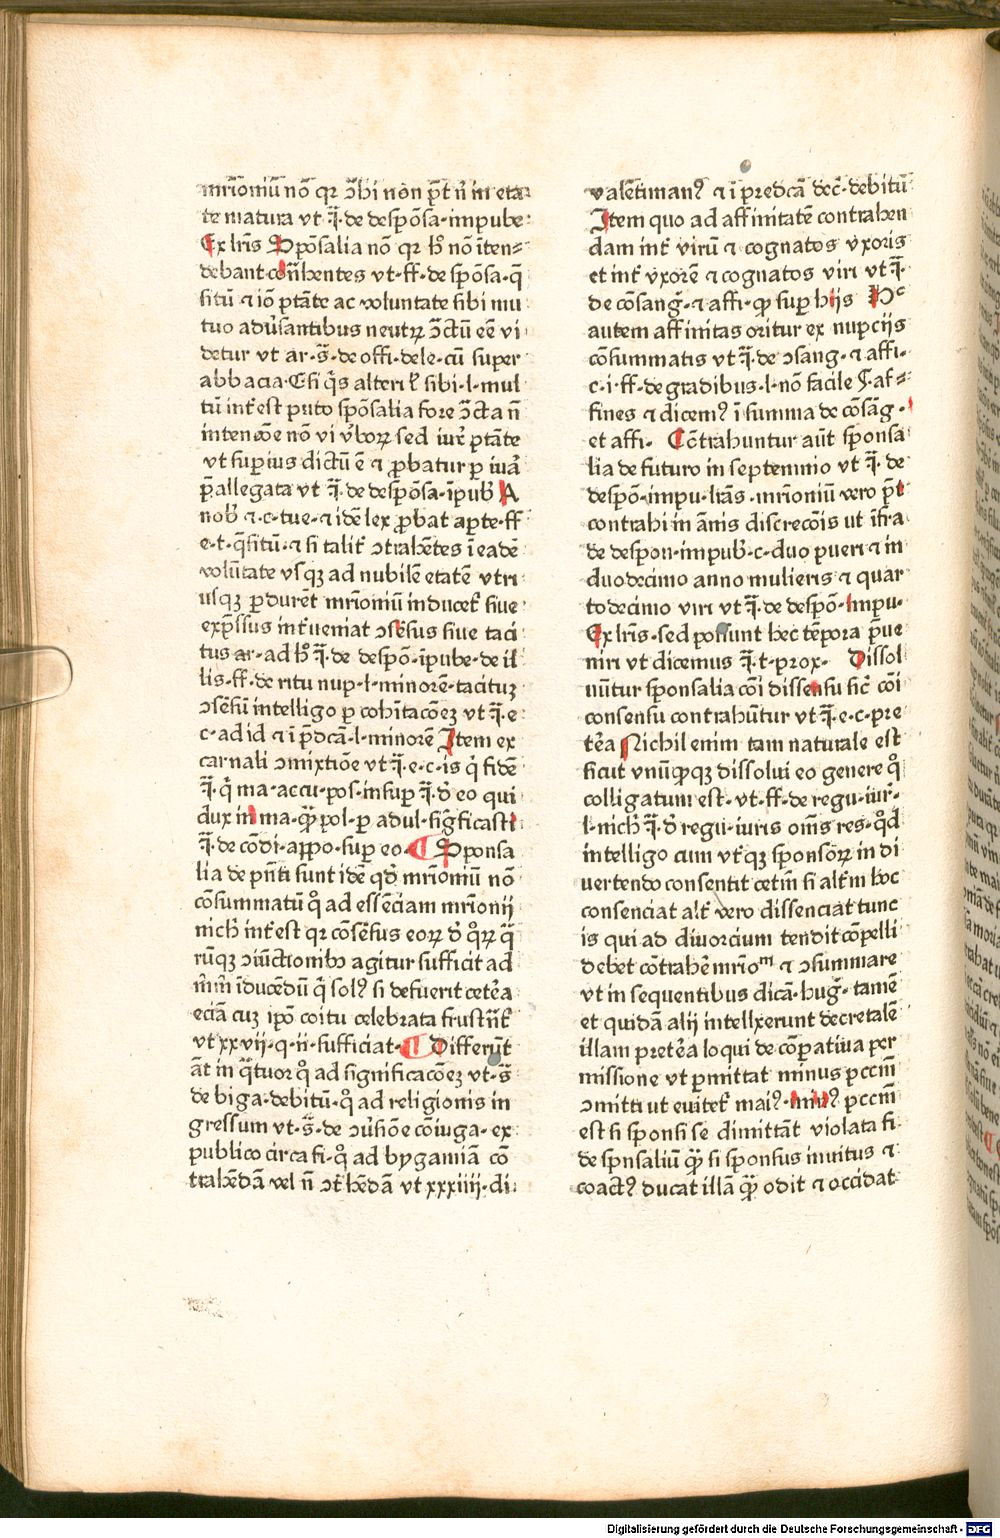 mr̄ioniū nō qr ɔ̄hi non p̄t n̄ in eta-
te matura vt ī̄·de despōsa·impube·
Ex lr̄is Spōsalia nō qr h̄ nō īten-
debant cōn̄hentes vt·ff·de spōsa·q̄
situ ⁊ iō ptāte ac voluntate sibi mu
tuo adūsantibus neutrꝝ ɔ̄ctū eē vi
detur vt ar·s̄·de offi·dele·cū super
abbacia·Et si q̄s alteri ł sibi·l·mul
tū int̄est puto spōsalia fore ɔ̄cta n̄
intencōe nō vi v̄borꝝ sed iur̄ ptāte
vt superius dictū ē ⁊ ꝓbatur ꝑ iurā
p̄allegata vt ī̄·de despōsa·īpub̄ A
nob̄ ⁊·c·tue·⁊ idē lex ꝓbat aperte·ff
e·t·q̄situ·⁊ si talit̄ ɔtrahētes ī eadē
volūtate vsqꝫ ad nubilē etatē vtri
usqꝫ ꝑdurēt mr̄ioniū inducet̄ siue
exp̄ssus int̄ueniat ɔsēsus siue taci
tus ar·ad h̄ ī̄·de despō·īpube·de il
lis·ff·de ritu nup·l·minorē·tacituꝫ
ɔsēsū intelligo ꝑ cohītacōeꝫ vt ī̄·e·
c·ad id ⁊ ī p̄dcā·l·minorē Item ex
carnali ɔmixtiōe vt ī̄·e·c·is q̄ fidē
ī̄·q̄ ma·accu·pos·insup ī̄·d̄ eo qui
dux in ma·quā pol·ꝑ adul·sigficasti
ī̄·de cōdi·appo·sup eo· ¶ Sponsa
lia de pn̄ti sunt idē qd̄ mr̄ioniū nō
cōsummatū qͦ ad essēciam mr̄ionij
nich̄ int̄est qr cōsēsus eorꝝ d̄ qͦrꝝ q̄
rūqꝫ ɔiūctionibꝫ agitur sufficit ad
mr̄im īducēdū q̄ solꝰ si defuerit cetēa
eciā cuꝫ ipō coitu celebrata frustn̄t̄
vt xxvij·q·ii·sufficiat· ¶ Differūt
āt in q̄tuor qͦ ad significacōeꝫ vt·s̄
de biga·debitū·qͦ ad religionis in
gressum vt·s̄·de ɔūsiōe cōiuga·ex
publico circa fi·qͦ ad bygamiā cō
trahēdā vel n̄ ɔt̄hēdā vt xxxiiij·di·
valētimanꝰ ⁊ ī predcā dec̄·debitū
Item quo ad affinitatē contrahen
dam int̄ virū ⁊ cognatos vxoris
et int̄ vxorē ⁊ cognatos viri vt ī̄·
de cōsanḡ·⁊ affi·ꝓ super hijs Hᶜ
autem affinitas oritur ex nupcijs
cōsummatis vt ī̄·de ɔsang·⁊ affi·
c·i·ff·de gradibus·l·nō facile §·af-
fines ⁊ dicemꝰ ī summa de cōsāg·
et affi· Cōtrahuntur aūt sponsa
lia de futuro in septennio vt ī̄·de
despō·impu·lrās·mr̄ioniū vero p̄t
contrahi in annis discrecōis ut īfra
de despon·impub̄·c·duo pueri ⁊ in
duodecimo anno mulieris ⁊ quar
todecimo viri vt ī̄·de despō·impu·
Ex lr̄is·sed possunt hec tēpora p̄ue
niri vt dicemus ī̄·t·prox· Dissol
uūtur sponsalia cōi dissensu sic̄ cōi
consensu contrahūtur vt ī̄·e·c·pre
tēa Nichil enim tam naturale est
sicut vnūqꝫqꝫ dissolui eo genere qͦ
colligatum est·vt·ff·de regu·iur·
l·nich̄ ī̄·d̄ regu·iuris om̄s res·qd̄
intelligo cum vt̄qꝫ sponsorꝝ in di
uertendo consentit cet̄m si alt̄m hoc
consenciat alt̄ vero dissenciat tunc
is qui ad diuorcium tendit cōpelli
debet cōtrahē mr̄ioᵐ ⁊ ɔsummare
vt in sequentibus dicā·huḡ·tamē
et quidā alij intellxerunt decretalē
illam pretēa loqui de cōpatiua per
missione vt permittat minus pccm̄
ɔmitti ut euitet̄ maiꝰ·minꝰ pccm̄
est si sponsi se dimittāt violata fi·
de spnsaliū quā si sponsus inuitus ⁊
coactꝰ ducat illā quā odit ⁊ occidat
Digitalisierung gefördert durch die Deutsche Forschungsgemeinschaft - DFG